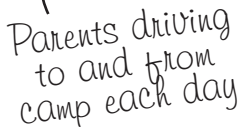 Parents driving
to and from
camp each day